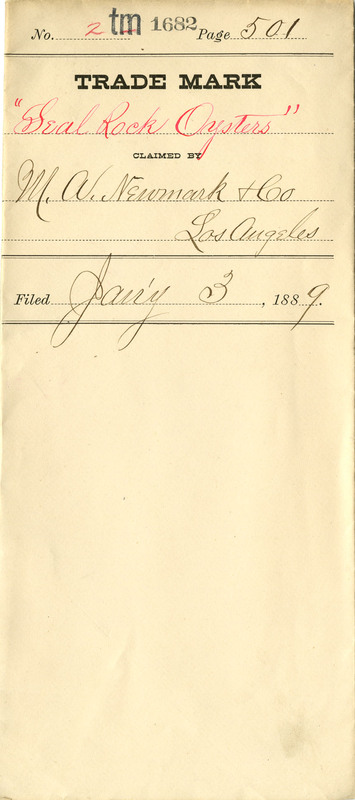 No. 2 tm 1682 Page 501
TRADE MARK
"Seal Rock Oysters"
CLAIMED BY
M. A. Newmark & Co
Los Angeles
Filed Jan'y 3, 1889.